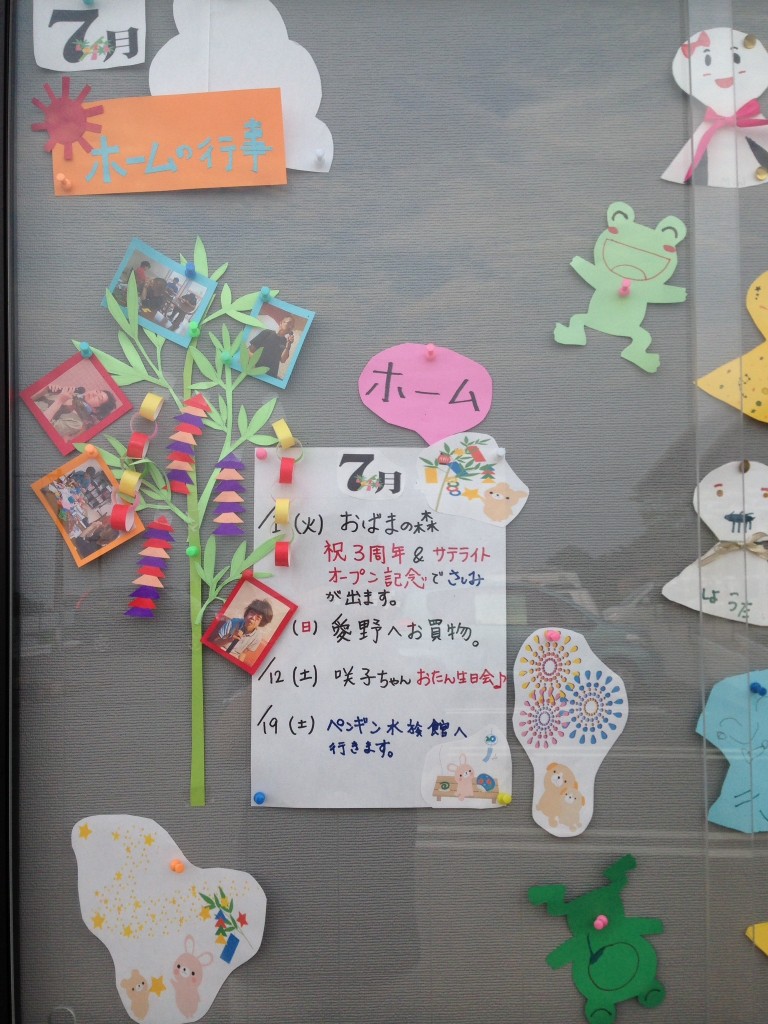 7月
ホームの行事
ホーム
7月
/1(火) おばまの森
祝3周年&サテライト
オープン記念でさしみ
が出ます。
(日) 愛野へお買物。
/12(土) 咲子ちゃん おたん生日会♪
/19(土) ペンギン水族館へ
行きます。
しょうた